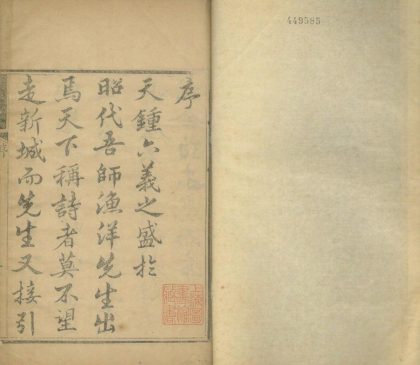 序
天鍾六義之盛於
昭代吾師漁洋先生出
焉天下稱詩者莫不望
走新城而先生又接引
449585